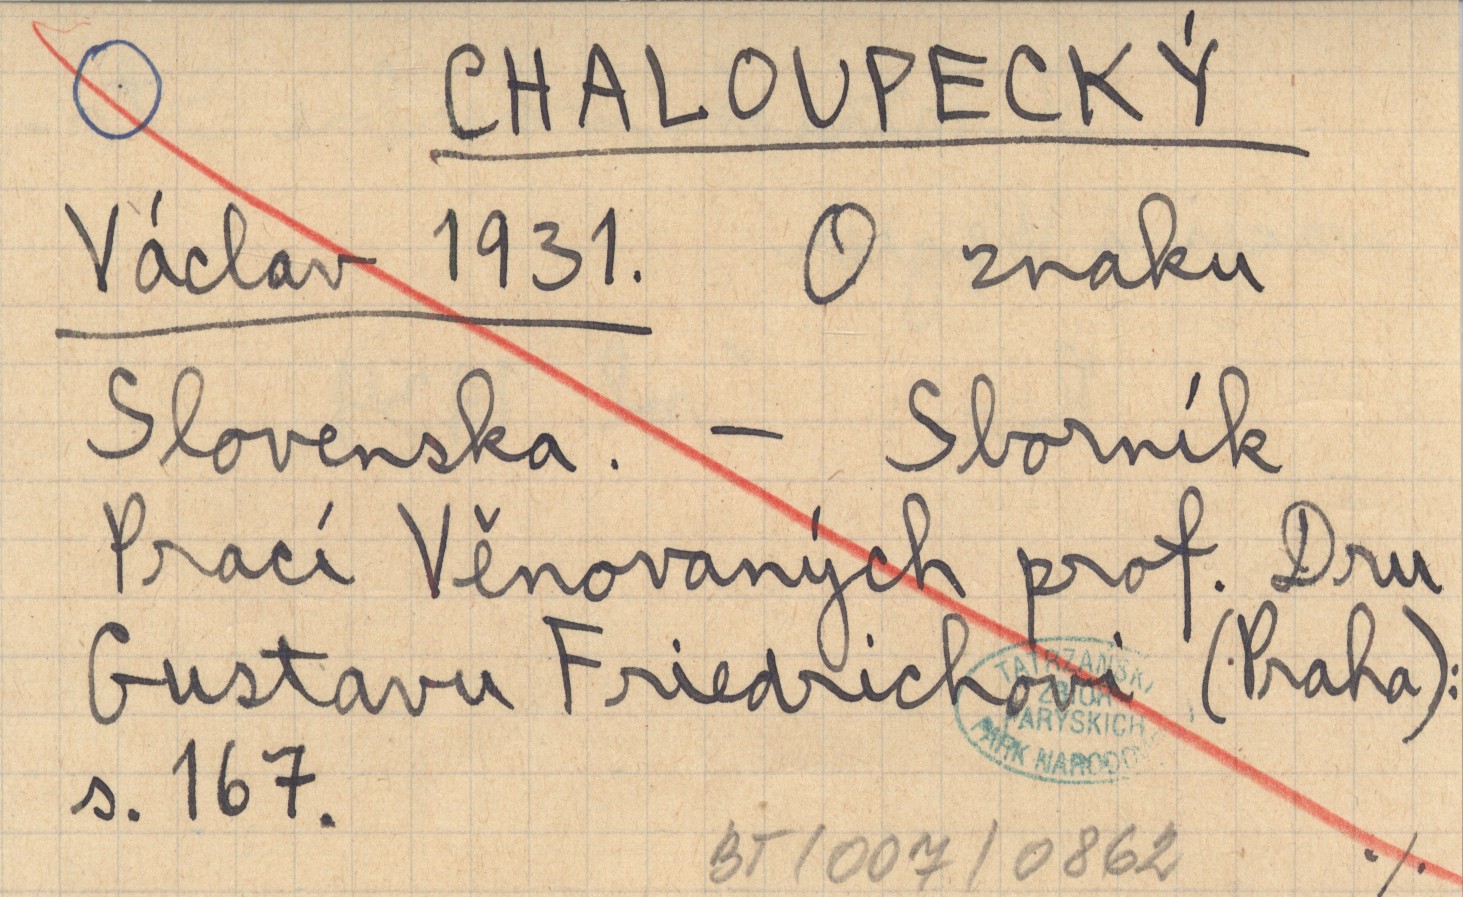 CHALOUPECKÝ
Václav 1931. O znaku
Slovenska. — Sborník
Prací Věnovaných prof. Dru
Gustavu Friedrichovi (Praha):
s. 167.
TATRZAŃSKI
ZBIÓR
PARYSKICH
PARK NARODOWY
BT/007/0862
./.